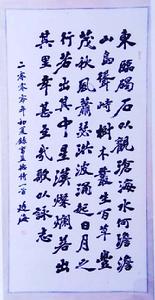 東臨碣石以觀滄海水何澹澹
山島聳峙樹木叢生百草豐
茂秋風蕭瑟洪波涌起日月之
行若出其中星漢燦爛若出
其里幸甚至哉歌以詠志
二零零零年初夏錄曹孟德詩一首